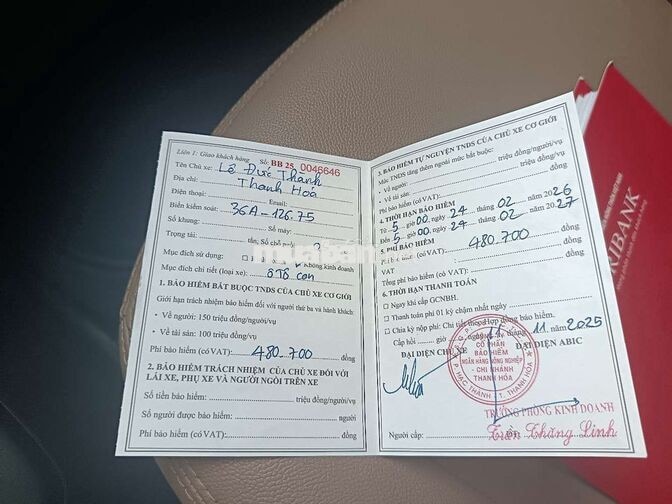 Liên 1: Giao khách hàng Số: BB 25 0046646
Tên Chủ xe: Lê Đức Thành
Địa chỉ: Thanh Hoá
Điện thoại: Email:
Biển kiểm soát: 36A-126.75
Số khung: Số máy:
Trọng tải: tấn, Số chỗ
Mục đích sử dụng: Không kinh doanh
Mục đích chi tiết (loại xe): ôtô con
1. BẢO HIỂM BẮT BUỘC TNDS CỦA CHỦ XE CƠ GIỚI
Giới hạn trách nhiệm bảo hiểm đối với người thứ ba và hành khách
- Về người: 150 triệu đồng/người/vụ
- Về tài sản: 100 triệu đồng/vụ
Phí bảo hiểm (có VAT): 480.700 đồng
2. BẢO HIỂM TRÁCH NHIỆM CỦA CHỦ XE ĐỐI VỚI
LÁI XE, PHỤ XE VÀ NGƯỜI NGỒI TRÊN XE
Số tiền bảo hiểm: triệu đồng/người/vụ
Số người được bảo hiểm: người
Phí bảo hiểm (có VAT): đồng
3. BẢO HIỂM TỰ NGUYỆN TNDS CỦA CHỦ XE CƠ GIỚI
Mức TNDS tăng thêm ngoài mức bắt buộc:
- Về người: triệu đồng/người/vụ
- Về tài sản: triệu đồng/vụ
Phí bảo hiểm (có VAT): đồng
4. THỜI HẠN BẢO HIỂM
Từ 5 giờ 00, ngày 24 tháng 02 năm 2026
Đến 5 giờ 00, ngày 24 tháng 02 năm 2027
5. PHÍ BẢO HIỂM
480.700 đồng
VAT đồng
Tổng phí bảo hiểm (có VAT): đồng
6. THỜI HẠN THANH TOÁN
Ngay khi cấp GCNBH.
Thanh toán phí 01 kỳ chậm nhất ngày
Chia kỳ nộp phí: Chi tiết theo hợp đồng bảo hiểm.
Cấp hồi giờ tháng 11 năm 2025
ĐẠI DIỆN CHỦ XE ĐẠI DIỆN ABIC
CỔ PHẦN
BẢO HIỂM
NGÂN HÀNG NÔNG NGHIỆP
CHI NHÁNH
THANH HÓA
P. HẠC THÀNH - T. THANH HÓA
TRƯỞNG PHÒNG KINH DOANH
Người cấp: ĐT:
Trần Thăng Linh
RIBANK